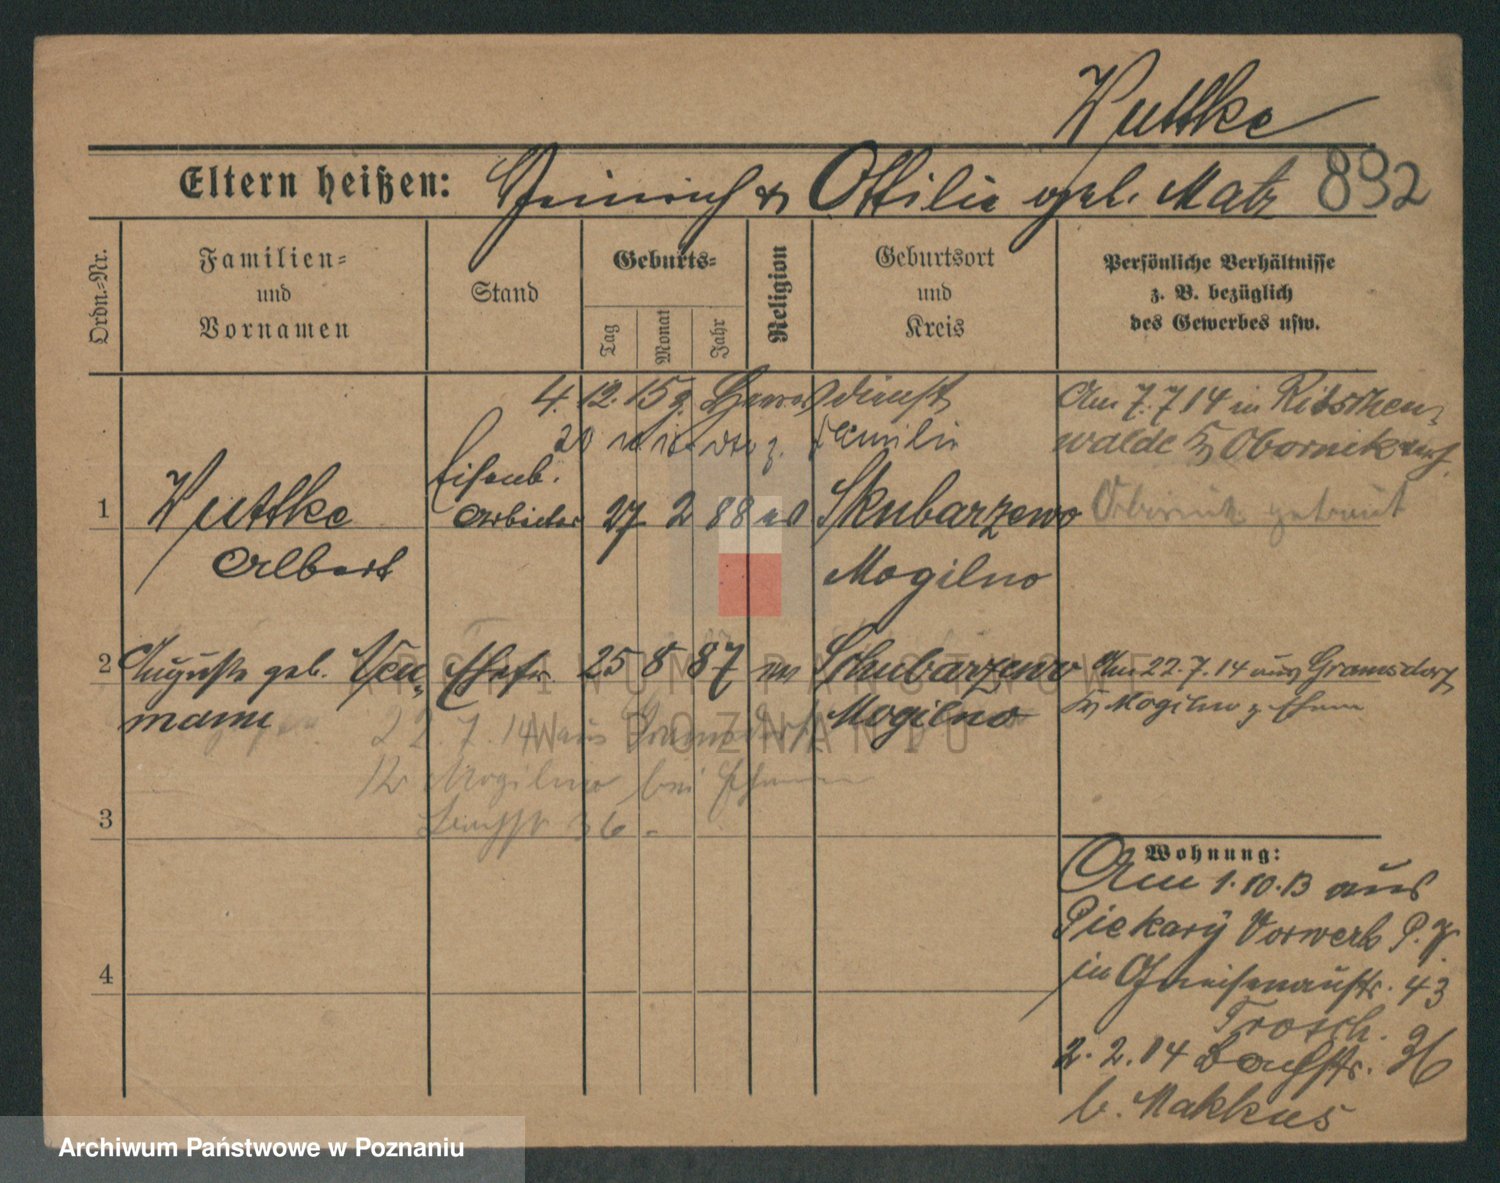 Wuttke
Eltern heißen: Heinrich & Ottilie geb. Matz 892
Ordn.-Nr.
Familien-
und
Vornamen
Stand
Geburts-
Tag
Monat
Jahr
Religion
Geburtsort
und
Kreis
Persönliche Verhältnisse
z. B. bezüglich
des Gewerbes usw.
4. 12. 15 z. Heeresdienst
20 wieder z. Familie
Am 7.7 14 in Ritschen-
walde Kr Obornik
getraut
1 Wuttke Eisenb. Arbeiter 27 2 88 ev Skubarzewo
Albert Mogilno
2 Auguste geb. Neu- Ehefr. 25 8 87 ev Schubarzewo Am 22.7.14 aus Gramsdorf
mann Mogilno Kr Mogilno z. Ehem
22.7.14 aus Gramsdorf
Kr Mogilno bei Ehemann
Bachstr 36.
3
4
Wohnung:
Am 1.10.13 aus
Piekary Vorwerk P. 7
in Gneisenaustr. 43
Trosch.
2.2.14 Bachstr. 36
b. Makkus
ARCHIWUM PAŃSTWOWE
W POZNANIU
Archiwum Państwowe w Poznaniu